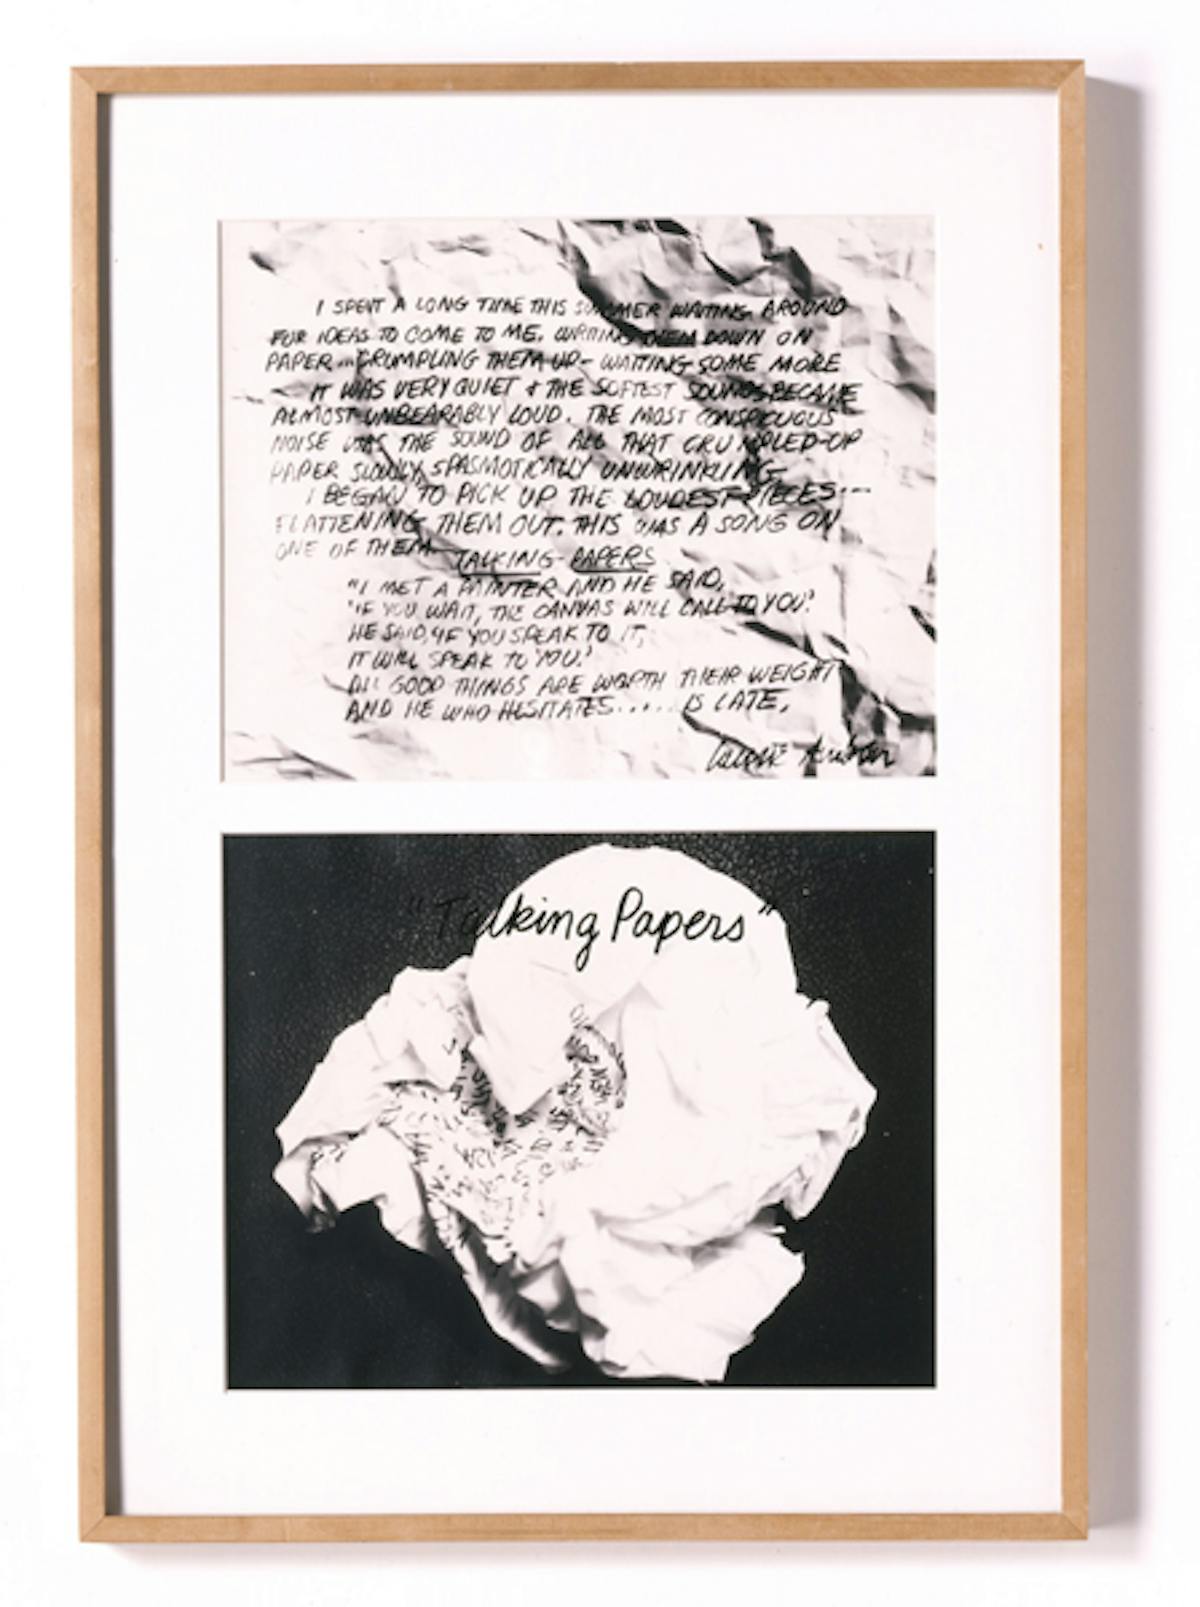 I SPENT A LONG TIME THIS SUMMER WAITING AROUND
FOR IDEAS TO COME TO ME. WRITING THEM DOWN ON
PAPER... CRUMPLING THEM UP- WAITING SOME MORE
IT WAS VERY QUIET & THE SOFTEST SOUNDS BECAME
ALMOST UNBEARABLY LOUD. THE MOST CONSPICUOUS
NOISE WAS THE SOUND OF ALL THAT CRUMPLED-UP
PAPER SLOWLY, SPASMOTICALLY UNWRINKLING
I BEGAN TO PICK UP THE LOUDEST PIECES---
FLATTENING THEM OUT. THIS WAS A SONG ON
ONE OF THEM
TALKING PAPERS
"I MET A PAINTER AND HE SAID,
'IF YOU WAIT, THE CANVAS WILL CALL TO YOU.'
HE SAID, 'IF YOU SPEAK TO IT,
IT WILL SPEAK TO YOU.'
ALL GOOD THINGS ARE WORTH THEIR WEIGHT
AND HE WHO HESITATES..... IS LATE.
"Talking Papers"